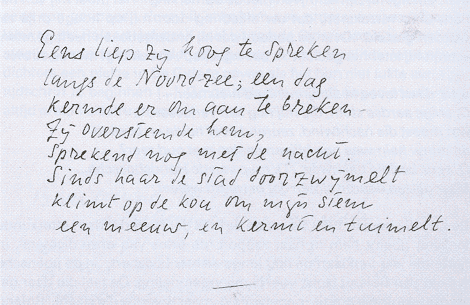 Eens liep zij hoog te spreken
langs de Noordzee; een dag
kermde er om aan te breken -
Zij overstemde hem,
sprekend nog met de nacht.
Sinds haar de stad doorzwijmelt
klimt op de kou om mijn stem
een meeuw, en kermt en tuimelt.